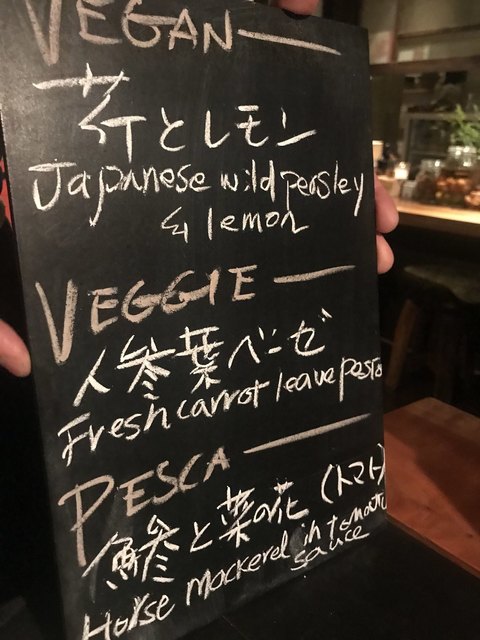 VEGAN
芹とレモン
Japanese wild parsley
& lemon
VEGGIE
人参葉ベーゼ
Fresh carrot leave pesto
PESCA
鰺と菜の花 (トマト)
Horse mackerel in tomato
sauce